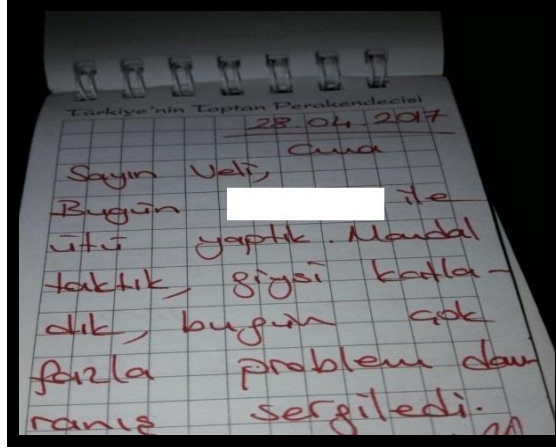 Türkiye'nin Toptan Perakendecisi
28.04.2017
Cuma
Sayın Veli,
Bugün ile
ütü yaptık. Mandal
taktık, giysi katla-
dık, bugün çok
fazla problem dav
ranış sergiledi.